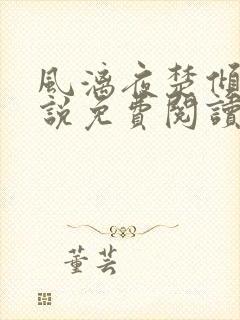 風漓夜楚傾
說免費閱讀
董芸